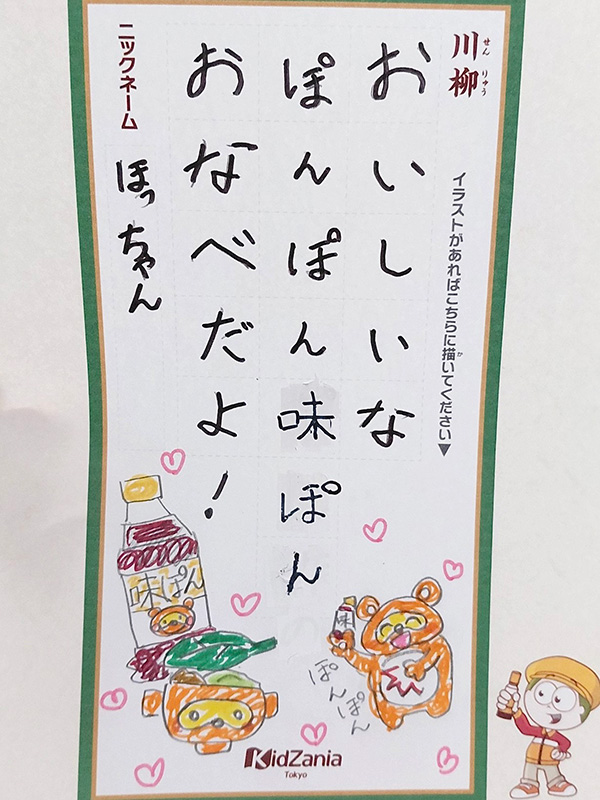 川柳
せんりゅう
イラストがあればこちらに描いてください▼
か
おいしいな
ぽんぽん味ぽん
おなべだよ!
ニックネーム
ほっちゃん
味ぽん
味
ぽんぽん
KidZania
Tokyo